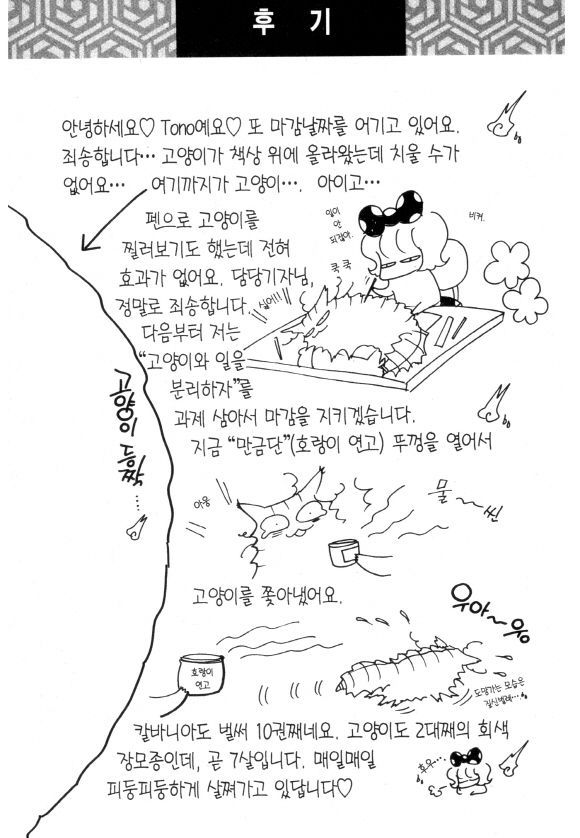 후 기
안녕하세요♡ Tono예요♡ 또 마감날짜를 어기고 있어요.
죄송합니다… 고양이가 책상 위에 올라왔는데 치울 수가
없어요… 여기까지가 고양이…. 아이고…
펜으로 고양이를
찔러보기도 했는데 전혀
효과가 없어요. 담당기자님,
정말로 죄송합니다.
다음부터 저는
“고양이와 일을
분리하자”를
과제 삼아서 마감을 지키겠습니다.
지금 “만금단”(호랑이 연고) 뚜껑을 열어서
일이
안
되잖아.
비켜.
쿡 쿡
싫어!!
고양이 등짝……
아웅
물~씬
고양이를 쫓아냈어요.
우아~웅
호랑이
연고
도망가는 모습은
집신벌레…
칼바니아도 벌써 10권째네요. 고양이도 2대째의 회색
장모종인데, 곧 7살입니다. 매일매일
피둥피둥하게 살쪄가고 있답니다♡
후우…